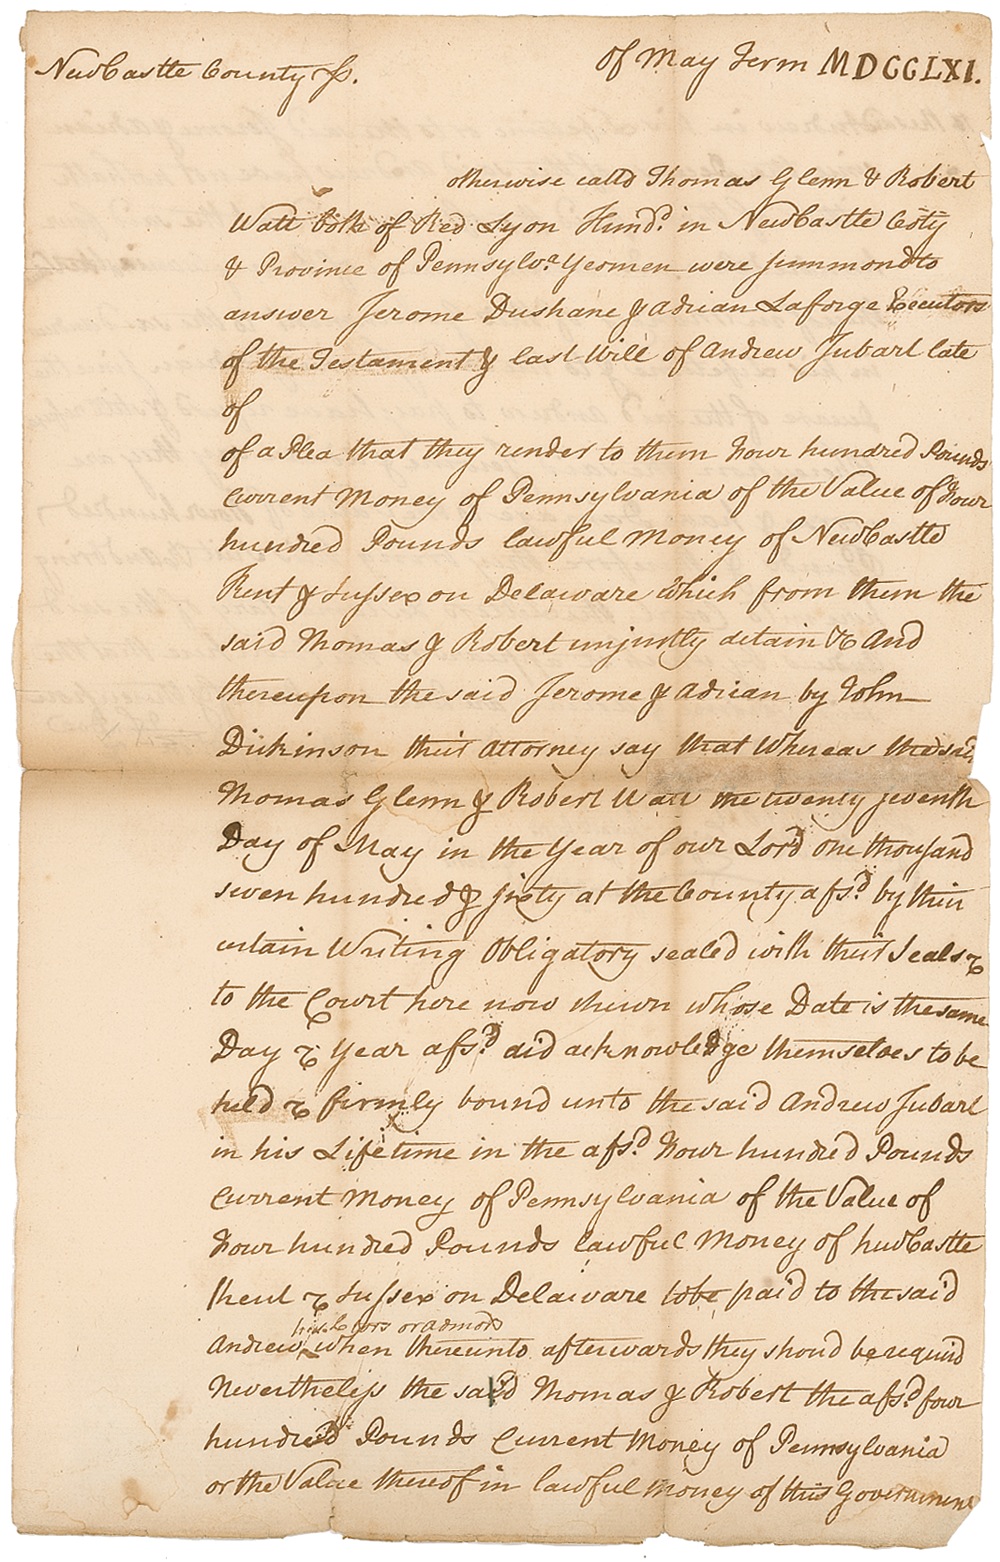 NewCastle County ss.
Of May Term MDCCLXI.
otherwise calld Thomas Glenn & Robert
Watt both of Red Lyon Hund.d in NewCastle Coty
& Province of Pennsylv.a Yeomen were summond to
answer Jerome Dushane & Adrian Laforge Executors
of the Testament & last Will of Andrew Jubart late
of
of a Plea that they render to them Four hundred Pounds
Current Money of Pennsylvania of the Value of Four
hundred Pounds lawful Money of NewCastle
Kent & Sussex on Delaware which from them the
said Thomas & Robert unjustly detain &c And
thereupon the said Jerome & Adrian by John
Dickinson their Attorney say that Whereas the said
Thomas Glenn & Robert Watt the twenty seventh
Day of May in the Year of our Lord one thousand
seven hundred & sixty at the County afs.d by their
certain Writing Obligatory sealed with their Seals &
to the Court here now shewn whose Date is the same
Day & Year afs.d did acknowledge themselves to be
held & firmly bound unto the said Andrew Jubart
in his Lifetime in the afs.d Four hundred Pounds
Current Money of Pennsylvania of the Value of
Four hundred Pounds lawful Money of NewCastle
Kent & Sussex on Delaware to be paid to the said
his Exors or Admors
Andrew when thereunto afterwards they shou'd be requird
Nevertheless the said Thomas & Robert the afs.d four
hundred Pounds Current Money of Pennsylvania
or the Value thereof in lawful Money of this Government